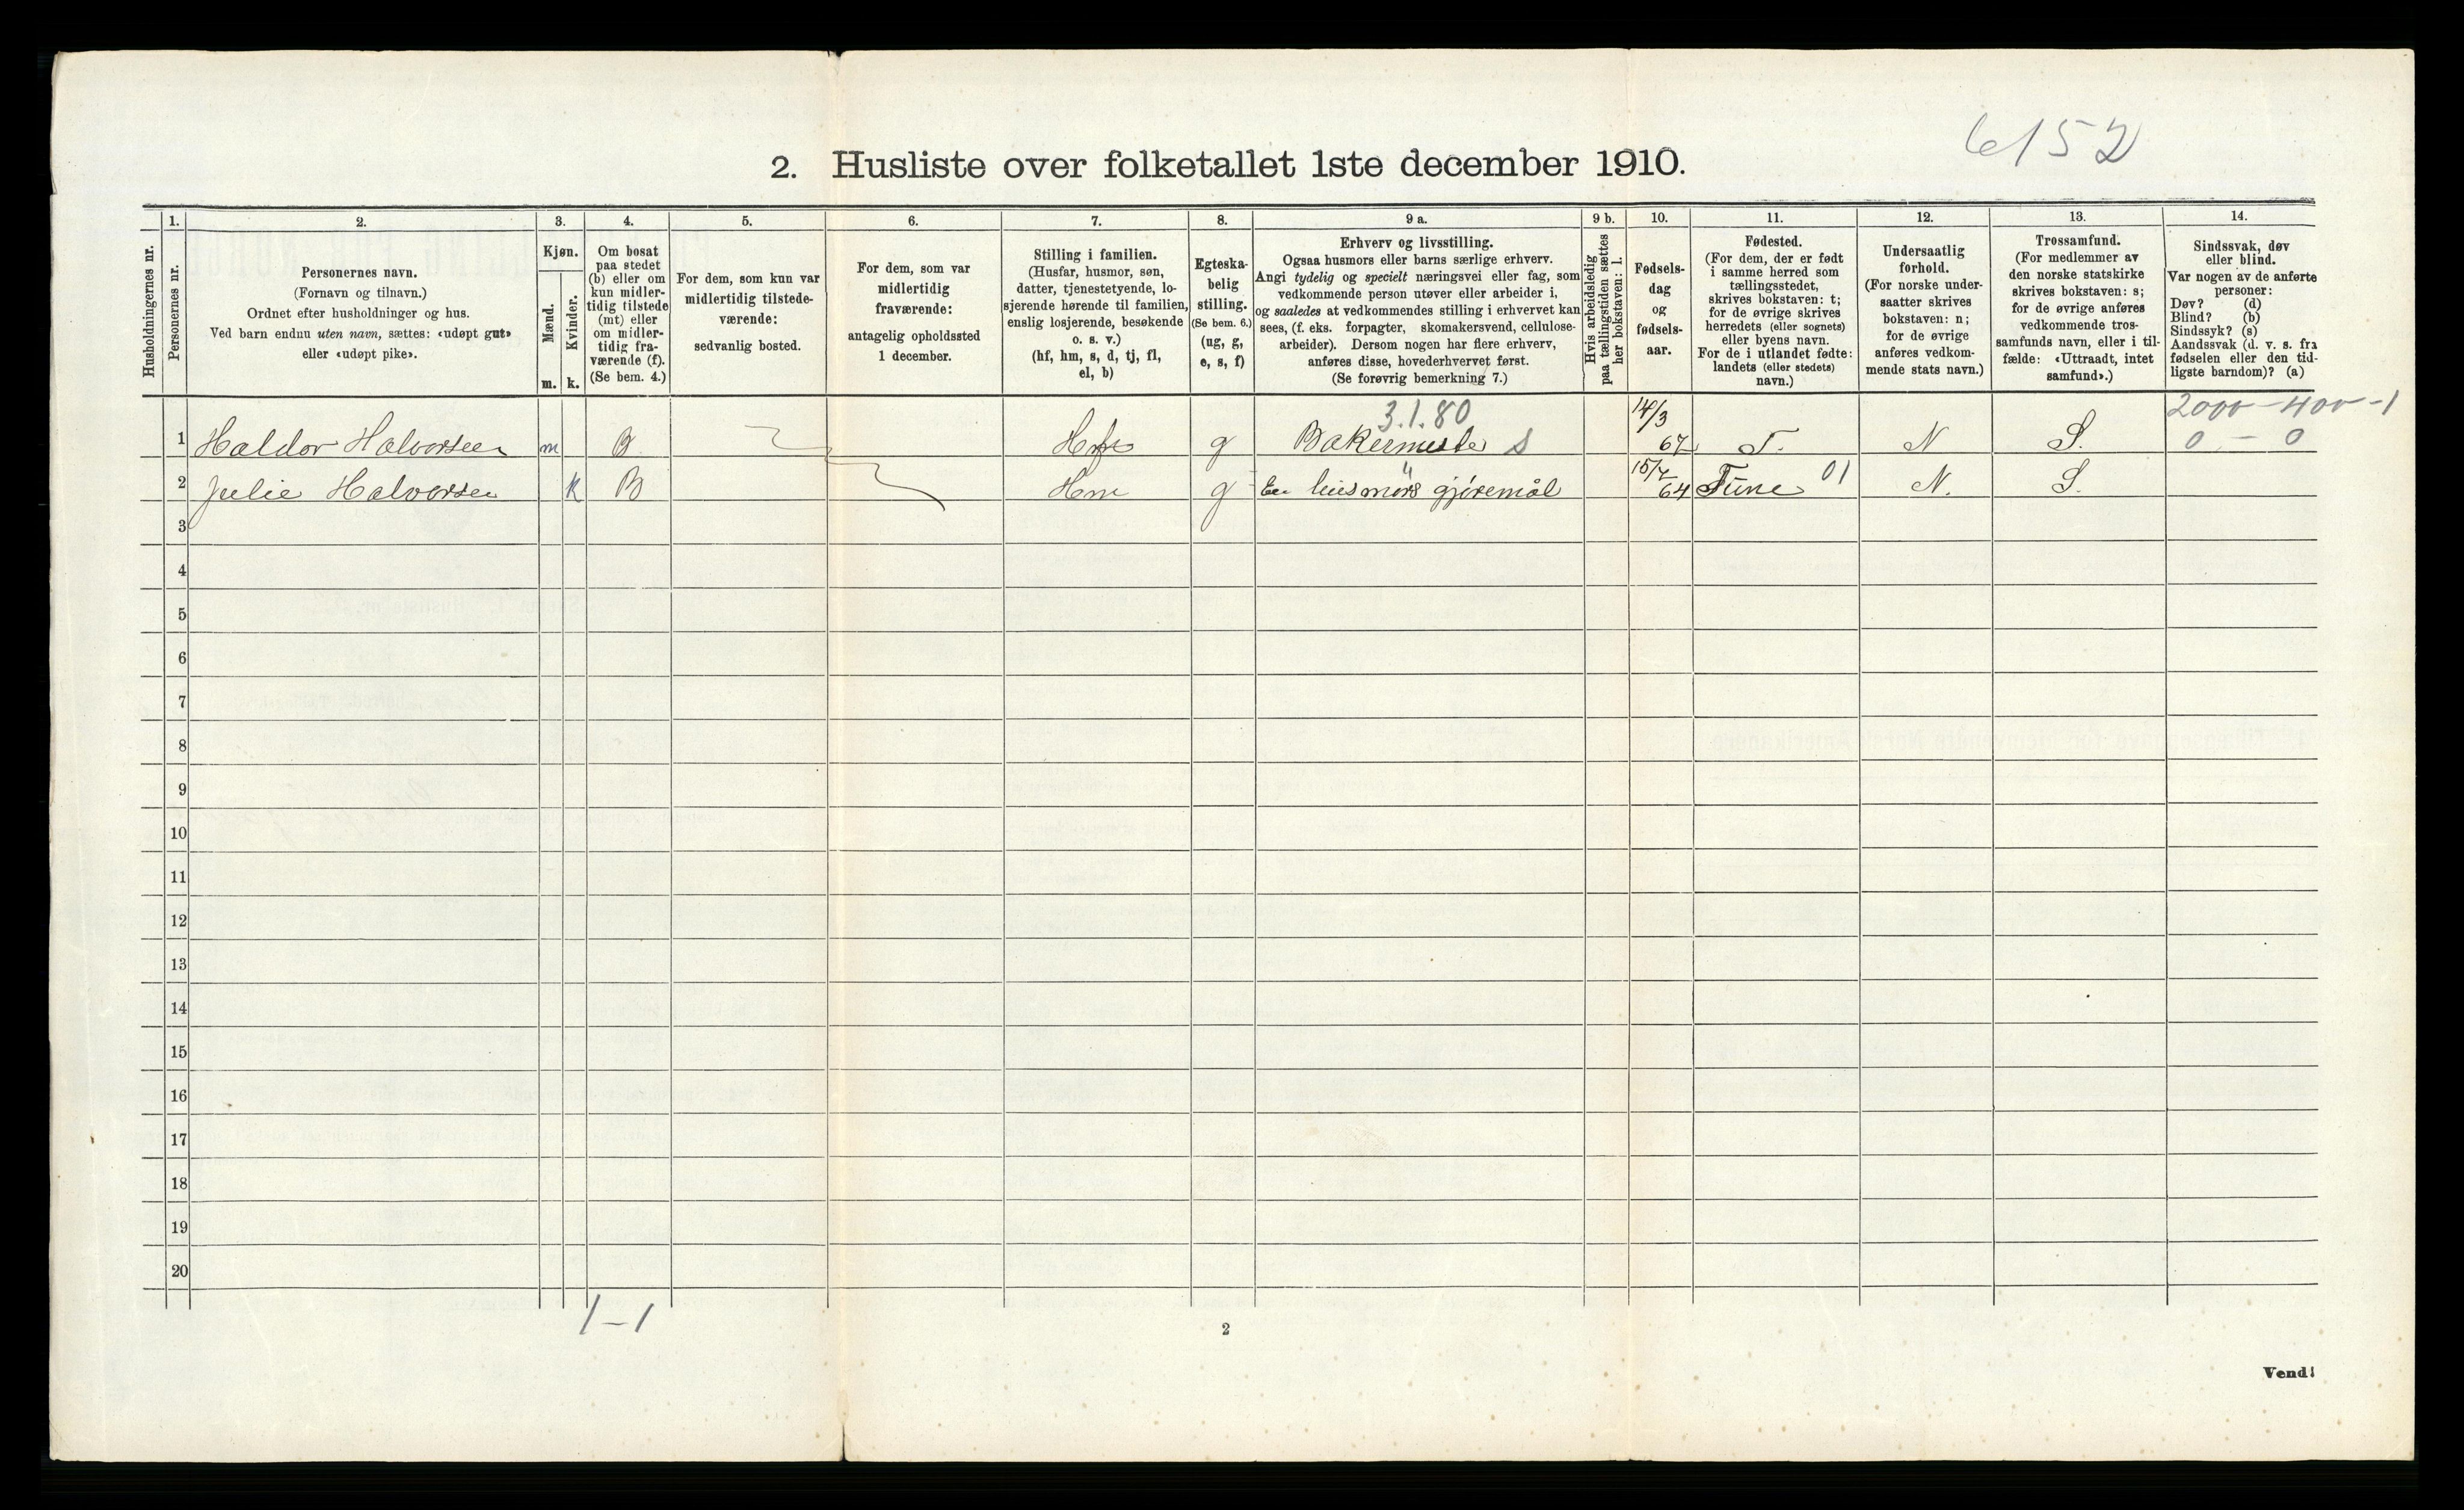 6152
2. Husliste over folketallet 1ste december 1910.
1. 2. 3. 4. 5. 6. 7. 8. 9 a. 9 b. 10. 11. 12. 13. 14.
Husholdningernes nr.
Personernes nr.
Personernes navn.
(Fornavn og tilnavn.)
Ordnet efter husholdninger og hus.
Ved barn endnu uten navn, sættes: «udøpt gut»
eller «udøpt pike».
Kjøn.
Mænd.
m.
Kvinder.
k.
Om bosat
paa stedet
(b) eller om
kun midler-
tidig tilstede
(mt) eller
om midler-
tidig fra-
værende (f).
(Se bem. 4.)
For dem, som kun var
midlertidig tilstede-
værende:
sedvanlig bosted.
For dem, som var
midlertidig
fraværende:
antagelig opholdssted
1 december.
Stilling i familien.
(Husfar, husmor, søn,
datter, tjenestetyende, lo-
sjerende hørende til familien,
enslig losjerende, besøkende
o. s. v.)
(hf, hm, s, d, tj, fl,
el, b)
Egteska-
belig
stilling.
(Se bem. 6.)
(ug, g,
e, s, f)
Erhverv og livsstilling.
Ogsaa husmors eller barns særlige erhverv.
Angi tydelig og specielt næringsvei eller fag, som
vedkommende person utøver eller arbeider i,
og saaledes at vedkommendes stilling i erhvervet kan
sees, (f. eks. forpagter, skomakersvend, cellulose-
arbeider). Dersom nogen har flere erhverv,
anføres disse, hovederhvervet først.
(Se forøvrig bemerkning 7.)
Hvis arbeidsledig
paa tællingstiden sættes
her bokstaven: l.
Fødsels-
dag
og
fødsels-
aar.
Fødested.
(For dem, der er født
i samme herred som
tællingsstedet,
skrives bokstaven: t;
for de øvrige skrives
herredets (eller sognets)
eller byens navn.
For de i utlandet fødte:
landets (eller stedets)
navn.)
Undersaatlig
forhold.
(For norske under-
saatter skrives
bokstaven: n;
for de øvrige
anføres vedkom-
mende stats navn.)
Trossamfund.
(For medlemmer av
den norske statskirke
skrives bokstaven: s;
for de øvrige anføres
vedkommende tros-
samfunds navn, eller i til-
fælde: «Uttraadt, intet
samfund».)
Sindssvak, døv
eller blind.
Var nogen av de anførte
personer:
Døv? (d)
Blind? (b)
Sindssyk? (s)
Aandssvak (d. v. s. fra
fødselen eller den tid-
ligste barndom)? (a)
3.1.80 14/3 2000 - 400 - 1
1 Haldor Halvorsen m B Hf g Bakermester S 67 T. N S. 0 - 0
15/7 01
2 Julie Halvorsen k B Hm g En husmors gjøremål 64 Tune N. S.
3
4
5
6
7
8
9
10
11
12
13
14
15
16
17
18
19
20
1-1
2
Vend!